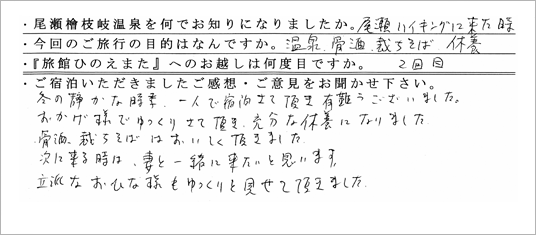 ・尾瀬檜枝岐温泉を何でお知りになりましたか。尾瀬ハイキングに来た時
・今回のご旅行の目的はなんですか。温泉、骨酒、裁ちそば 休養
・『旅館ひのえまた』へのお越しは何度目ですか。 2回目
・ご宿泊いただきましたご感想・ご意見をお聞かせ下さい。
冬の静かな時季、一人で宿泊させて頂き有難うございました。
おかげ様でゆっくりさせて頂き、充分な休養になりました。
骨酒、裁ちそばはおいしく頂きました。
次に来る時は、妻と一緒に来たいと思います。
立派なおひな様もゆっくりと見せて頂きました。